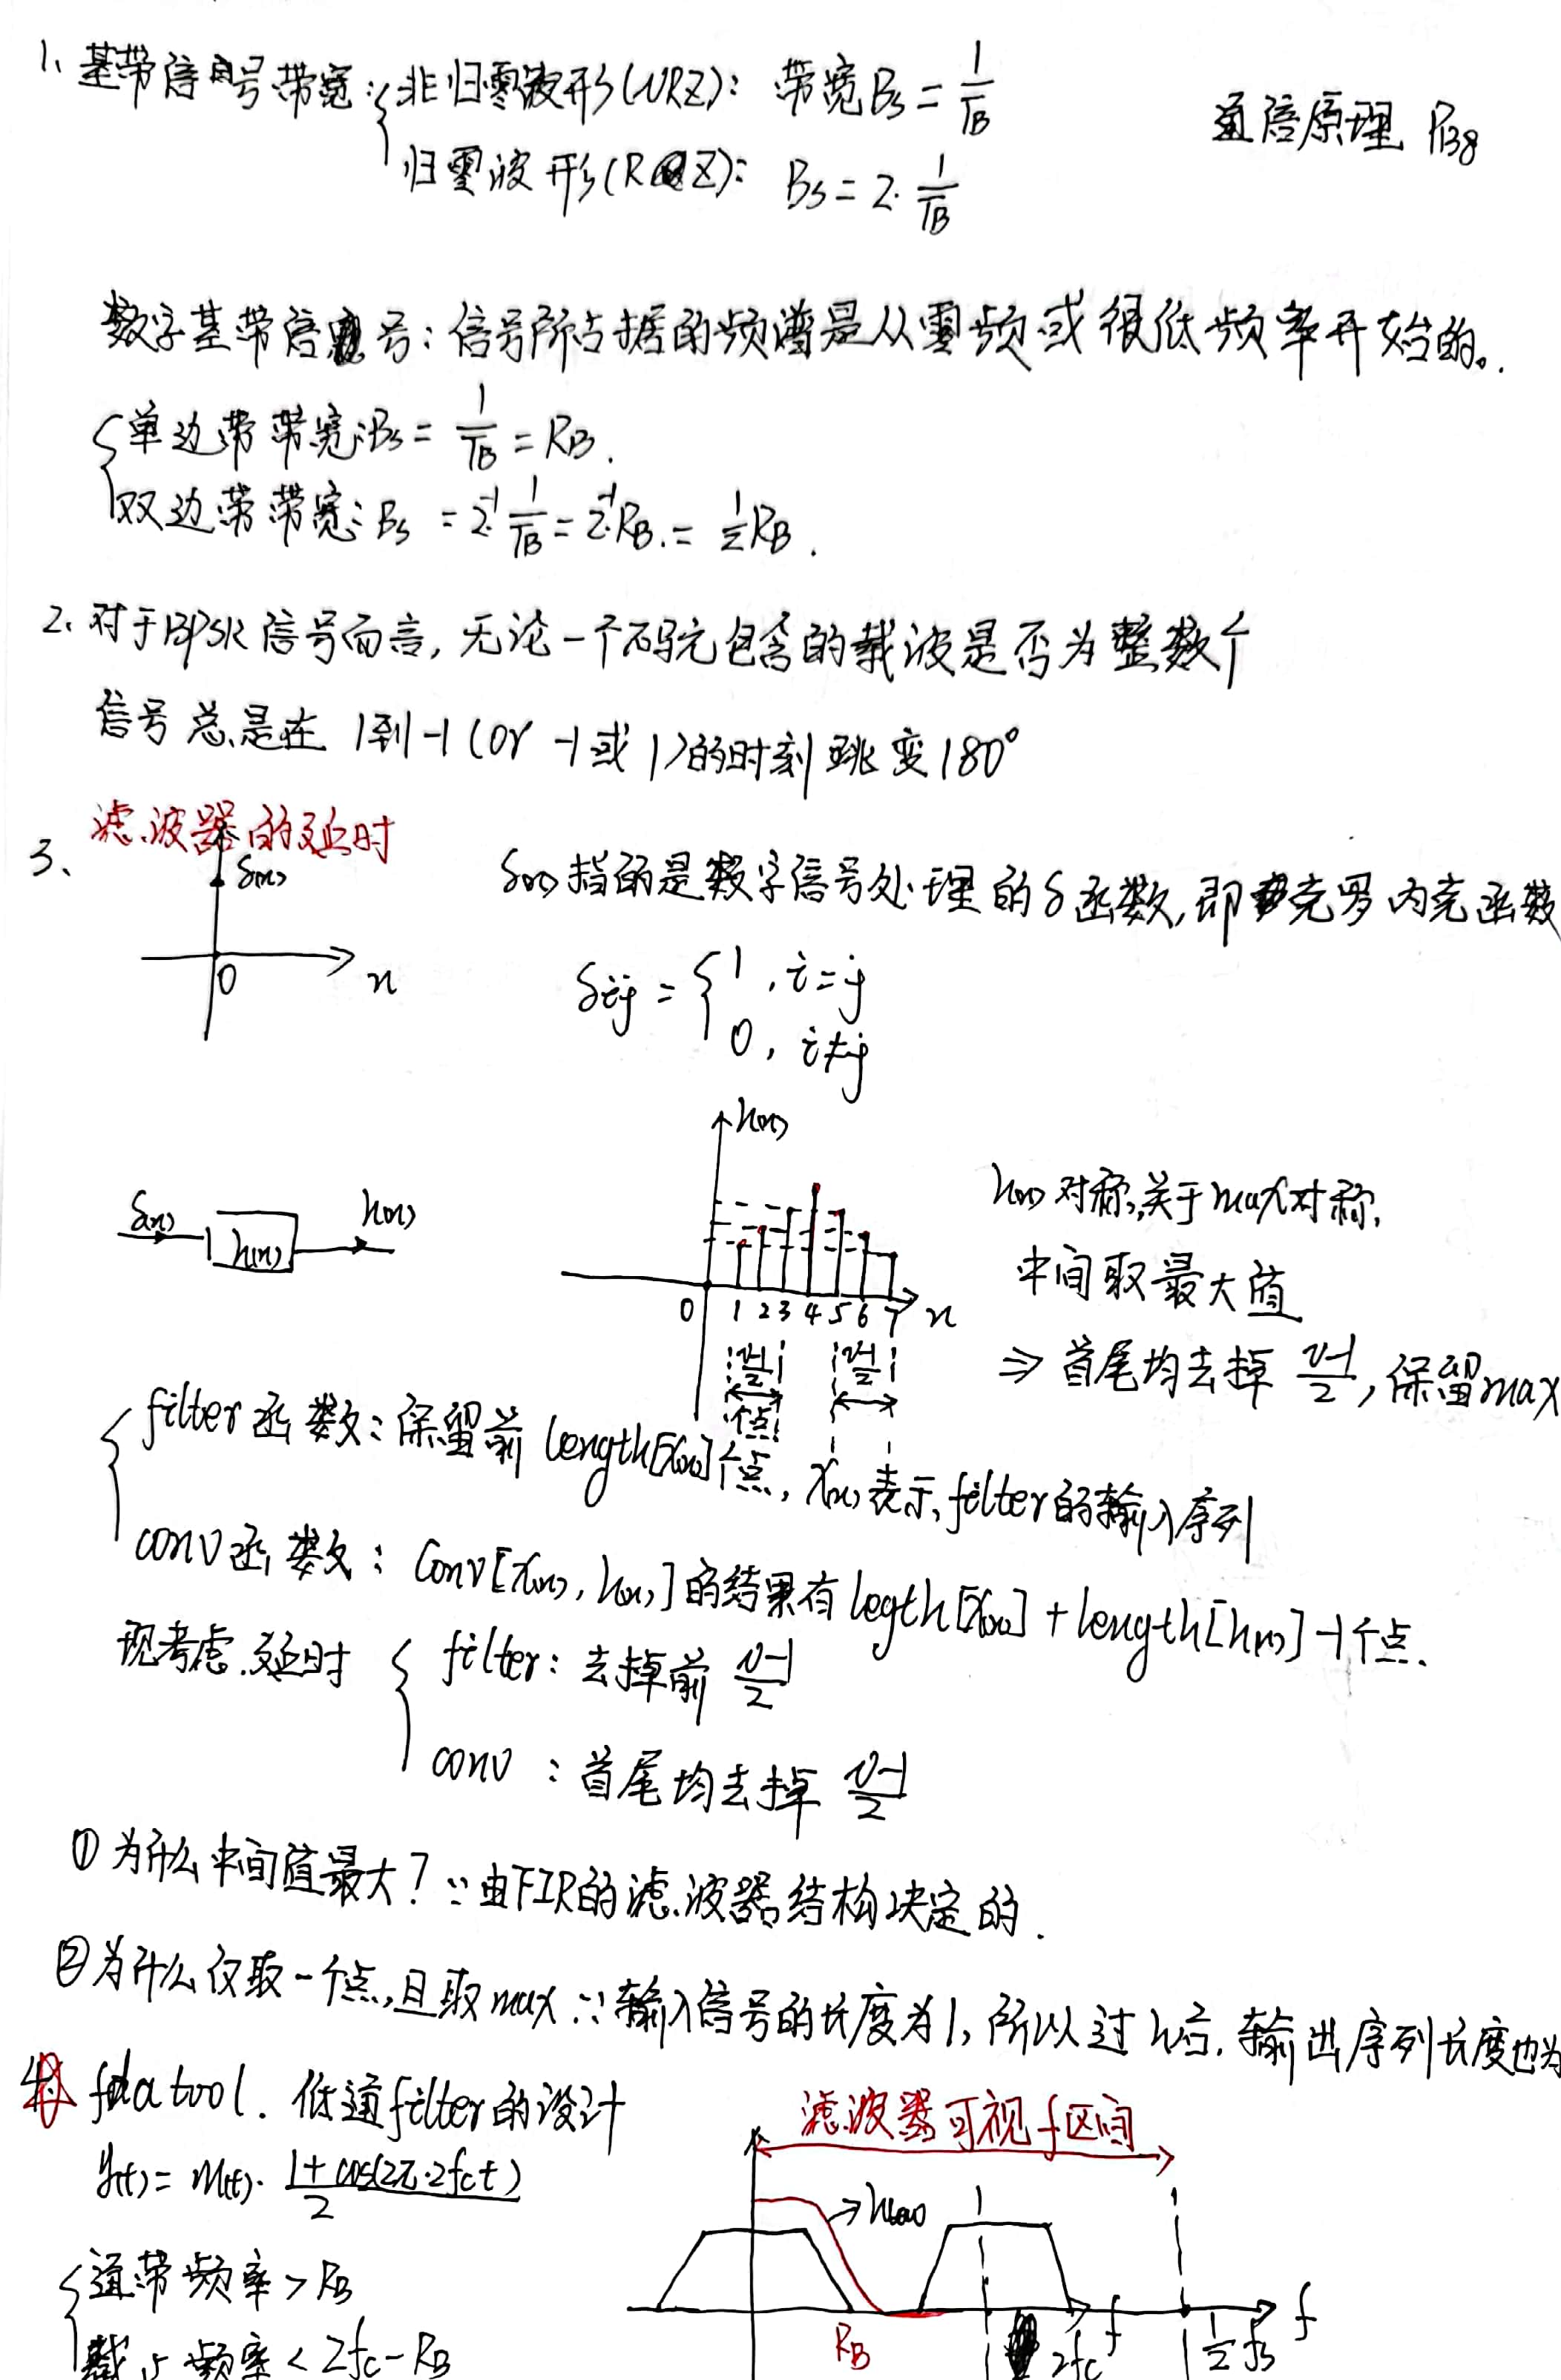 1、基带信号带宽：{非归零波形(NRZ)：带宽Bs = 1/TB
通信原理 P138
归零波形(RZ)：Bs = 2·1/TB
数字基带信号：信号所占据的频谱是从零频或很低频率开始的。
{单边带带宽：Bs = 1/TB = RB.
双边带带宽：Bs = 2⁻¹·1/TB = 2⁻¹·RB. = 1/2 RB.
2、对于BPSK信号而言, 无论一个码元包含的载波是否为整数个
信号总是在 1到-1 (or -1或1)的时刻跳变180°
3、滤波器的延时
δ(n)
0 n
δ(n)指的是数字信号处理的δ函数, 即克罗内克函数
δij = {1, i=j
0, i≠j
δ(n) h(n) h(n)
h(n)
0 1 2 3 4 5 6 7 n
N-1/2 个点 N-1/2
h(n)对称,关于max对称,
中间取最大值
⇒ 首尾均去掉 N-1/2, 保留max
{filter函数：保留前 length[x(n)]个点, x(n)表示filter的输入序列
conv函数：Conv[x(n), h(n)]的结果有legth[x(n)] + length[h(n)] -1个点.
现考虑延时 {filter：去掉前 N-1/2
conv ：首尾均去掉 N-1/2
① 为什么中间值最大？∵由FIR的滤波器结构决定的.
②为什么仅取一个点,且取max ∵输入信号的长度为1, 所以过h后, 输出序列长度也为
4 fdatool. 低通filter的设计
y(t) = m(t)· 1+cos(2π·2fct)/2
{通带频率 > RB
截止频率 < 2fc - RB
滤波器可视f区间
RB 2fc f 1/2 fs f